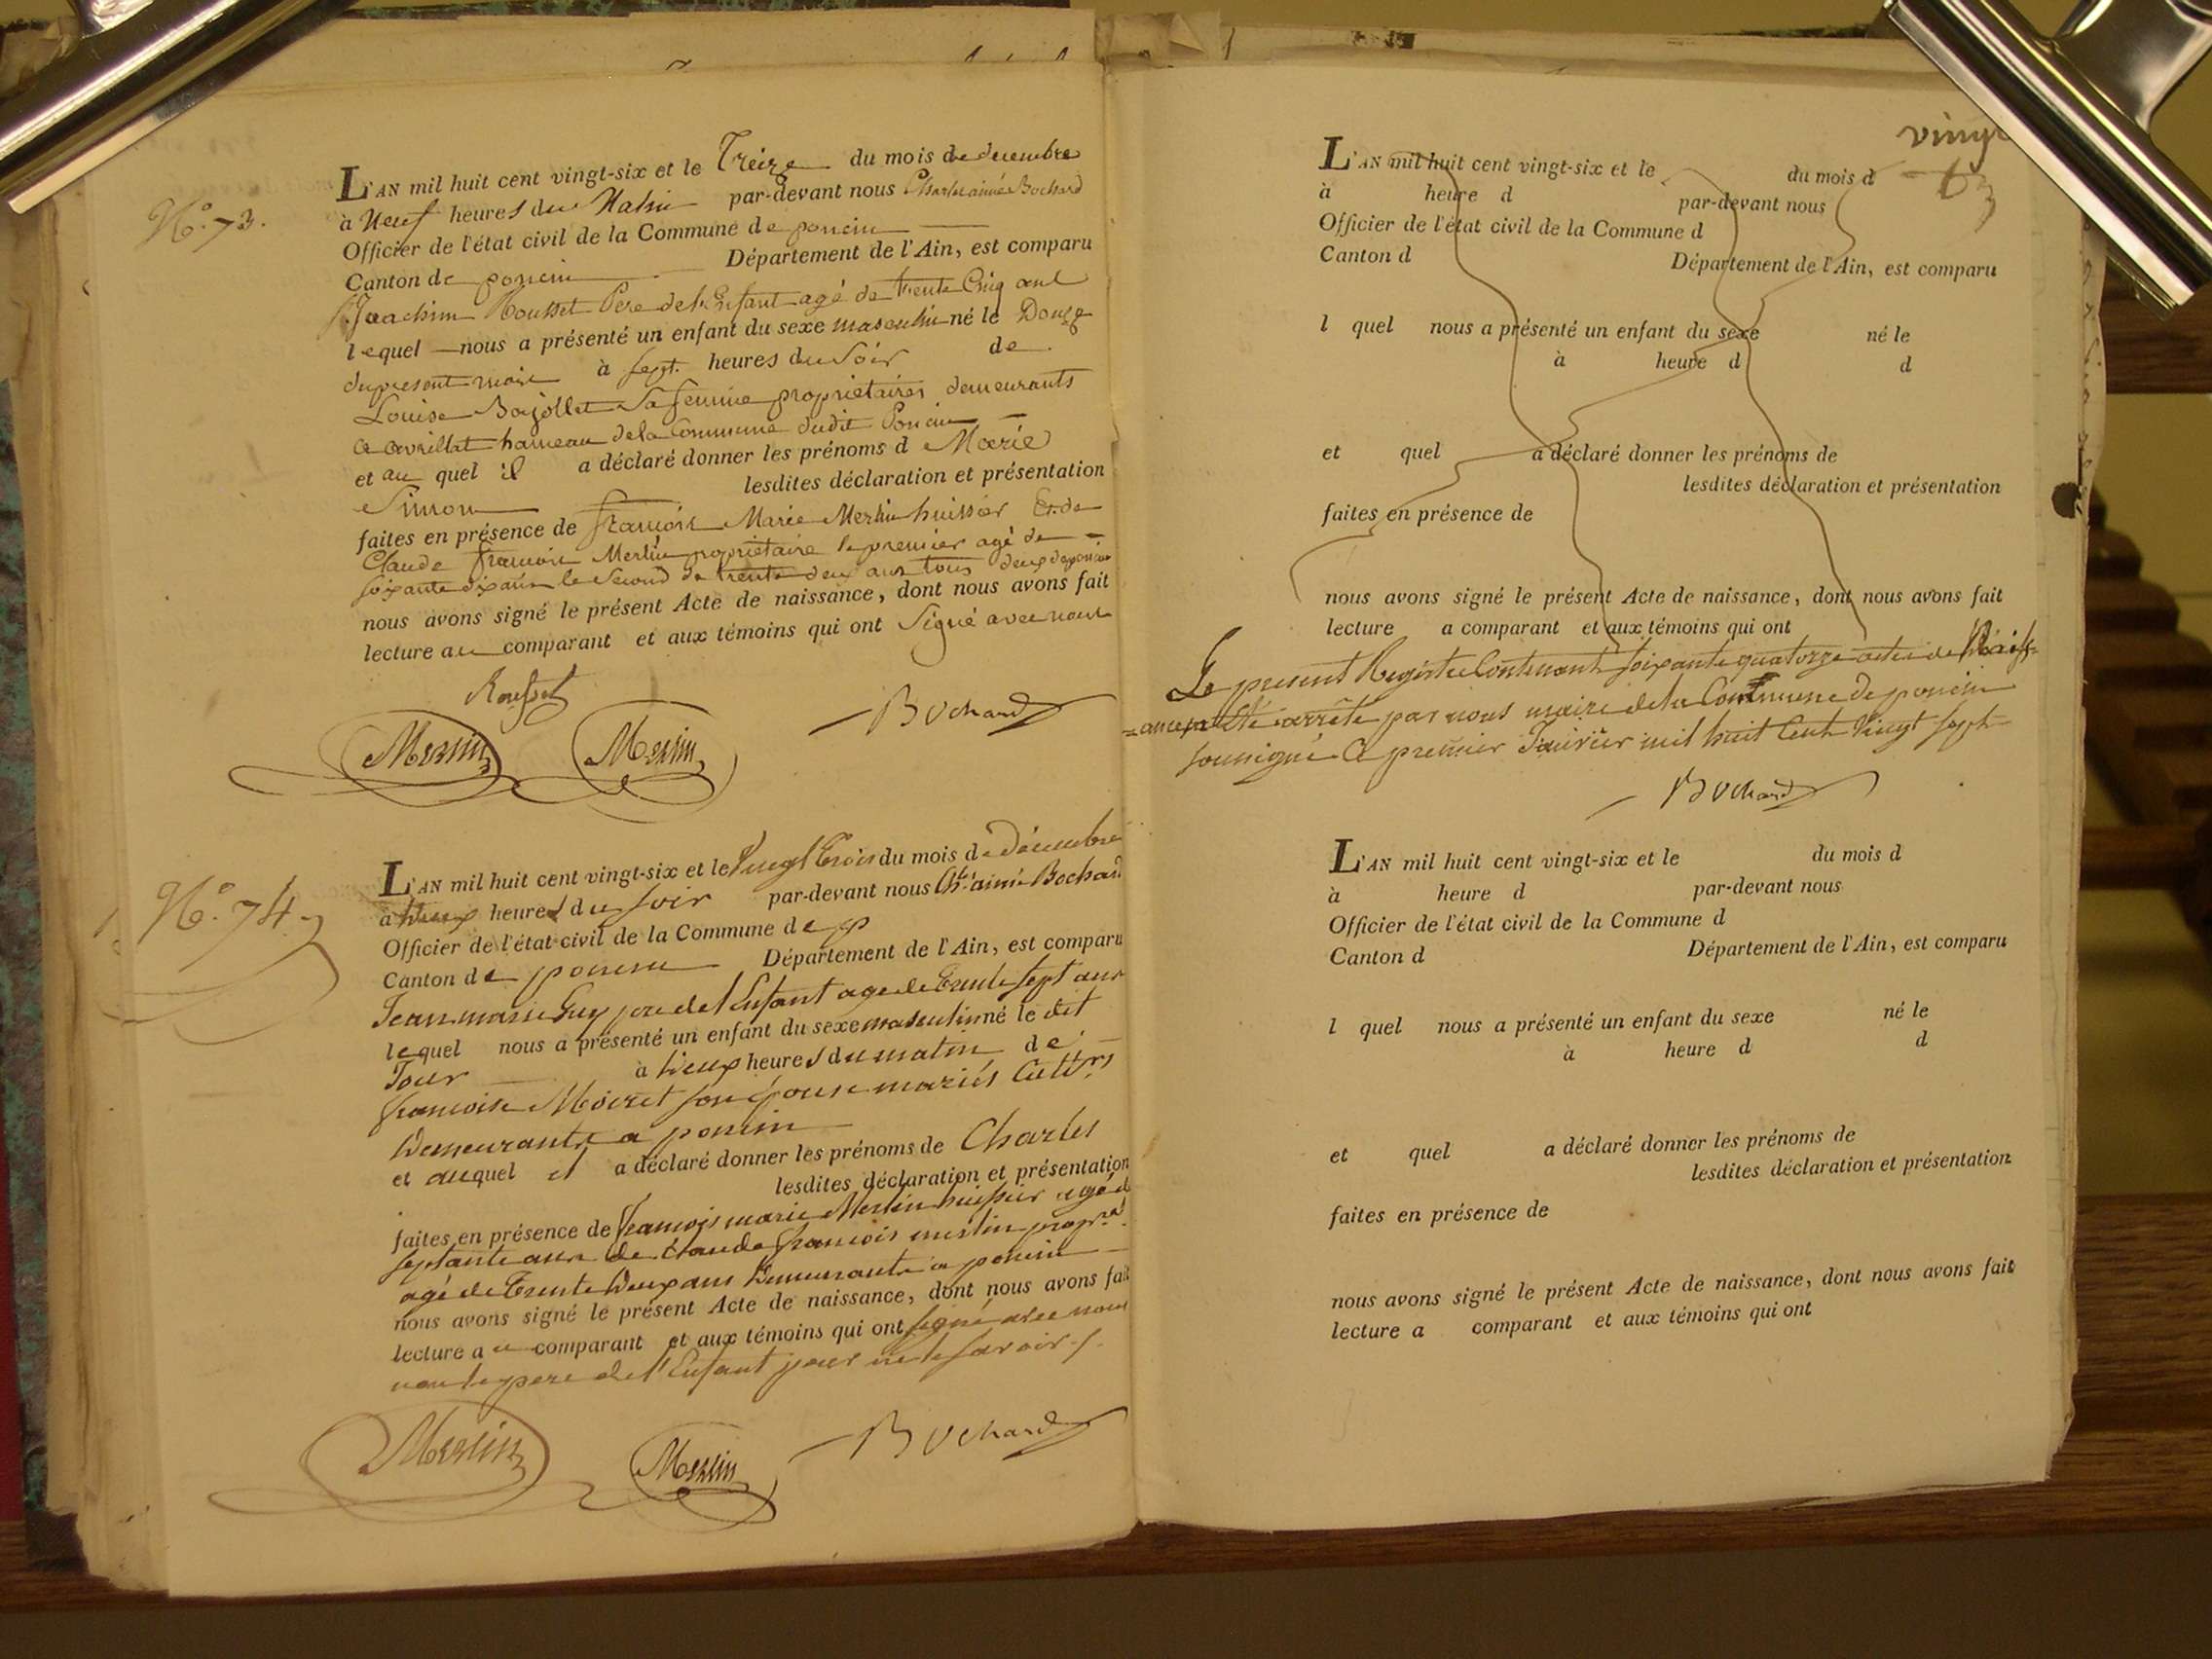 N.º 73.
L'AN mil huit cent vingt-six et le Treize du mois de decembre
à Neuf heures du Matin par-devant nous Charles aimé Bochard
Officier de l'état civil de la Commune de poncin
Canton de poncin Département de l'Ain, est comparu
Joachim Rousset Pere de l'Enfant agé de trente Cinq ans
lequel nous a présenté un enfant du sexe masculin né le Douze
du present mois à sept heures du soir de
Louise Bojollet sa femme proprietaires demeurants
a avrillat hameau de la Commune dudit Poncin
et au quel il a déclaré donner les prénoms d Marie
Simon lesdites déclaration et présentation
faites en présence de françois Marie Merlin huissier Et de
Claude françois Merlin propriétaire le premier agé de
soixante dix ans le second de trente deux ans tous deux de poncin
nous avons signé le présent Acte de naissance, dont nous avons fait
lecture au comparant et aux témoins qui ont signé avec nous
Rousset
Merlin Merlin Bochard
N.º 74
L'AN mil huit cent vingt-six et le Vingt trois du mois de Décembre
à Deux heures du soir par-devant nous Ch.les aimé Bochard
Officier de l'état civil de la Commune de p
Canton de poncin Département de l'Ain, est comparu
Jean marie Guy pere de l'Enfant age de trente sept ans
lequel nous a présenté un enfant du sexe masculin né le dit
Jour à Deux heures du matin de
françoise Moiret son épouse mariés Cultrs
Demeurants a poncin
et auquel il a déclaré donner les prénoms de Charles
lesdites déclaration et présentation
faites en présence de françois marie Merlin huissier agé de
septante ans de Claude françois merlin propre
agé de Trente Deux ans Demeurants a poncin
nous avons signé le présent Acte de naissance, dont nous avons fait
lecture au comparant et aux témoins qui ont signé avec nous
non le pere de l'Enfant pour ne le savoir
Merlin Merlin Bochard
vingt
L'AN mil huit cent vingt-six et le du mois d
à heure d par-devant nous
Officier de l'état civil de la Commune d
Canton d Département de l'Ain, est comparu
l quel nous a présenté un enfant du sexe né le
à heure d d
et quel a déclaré donner les prénoms de
lesdites déclaration et présentation
faites en présence de
nous avons signé le présent Acte de naissance, dont nous avons fait
lecture a comparant et aux témoins qui ont
Le present Registre Contenant soixante quatorze actes de Naiss=
=ance a été arrête par nous maire de la Commune de poncin
soussigné Ce premier Janvier mil huit Cent Vingt sept
Bochard
L'AN mil huit cent vingt-six et le du mois d
à heure d par-devant nous
Officier de l'état civil de la Commune d
Canton d Département de l'Ain, est comparu
l quel nous a présenté un enfant du sexe né le
à heure d d
et quel a déclaré donner les prénoms de
lesdites déclaration et présentation
faites en présence de
nous avons signé le présent Acte de naissance, dont nous avons fait
lecture a comparant et aux témoins qui ont